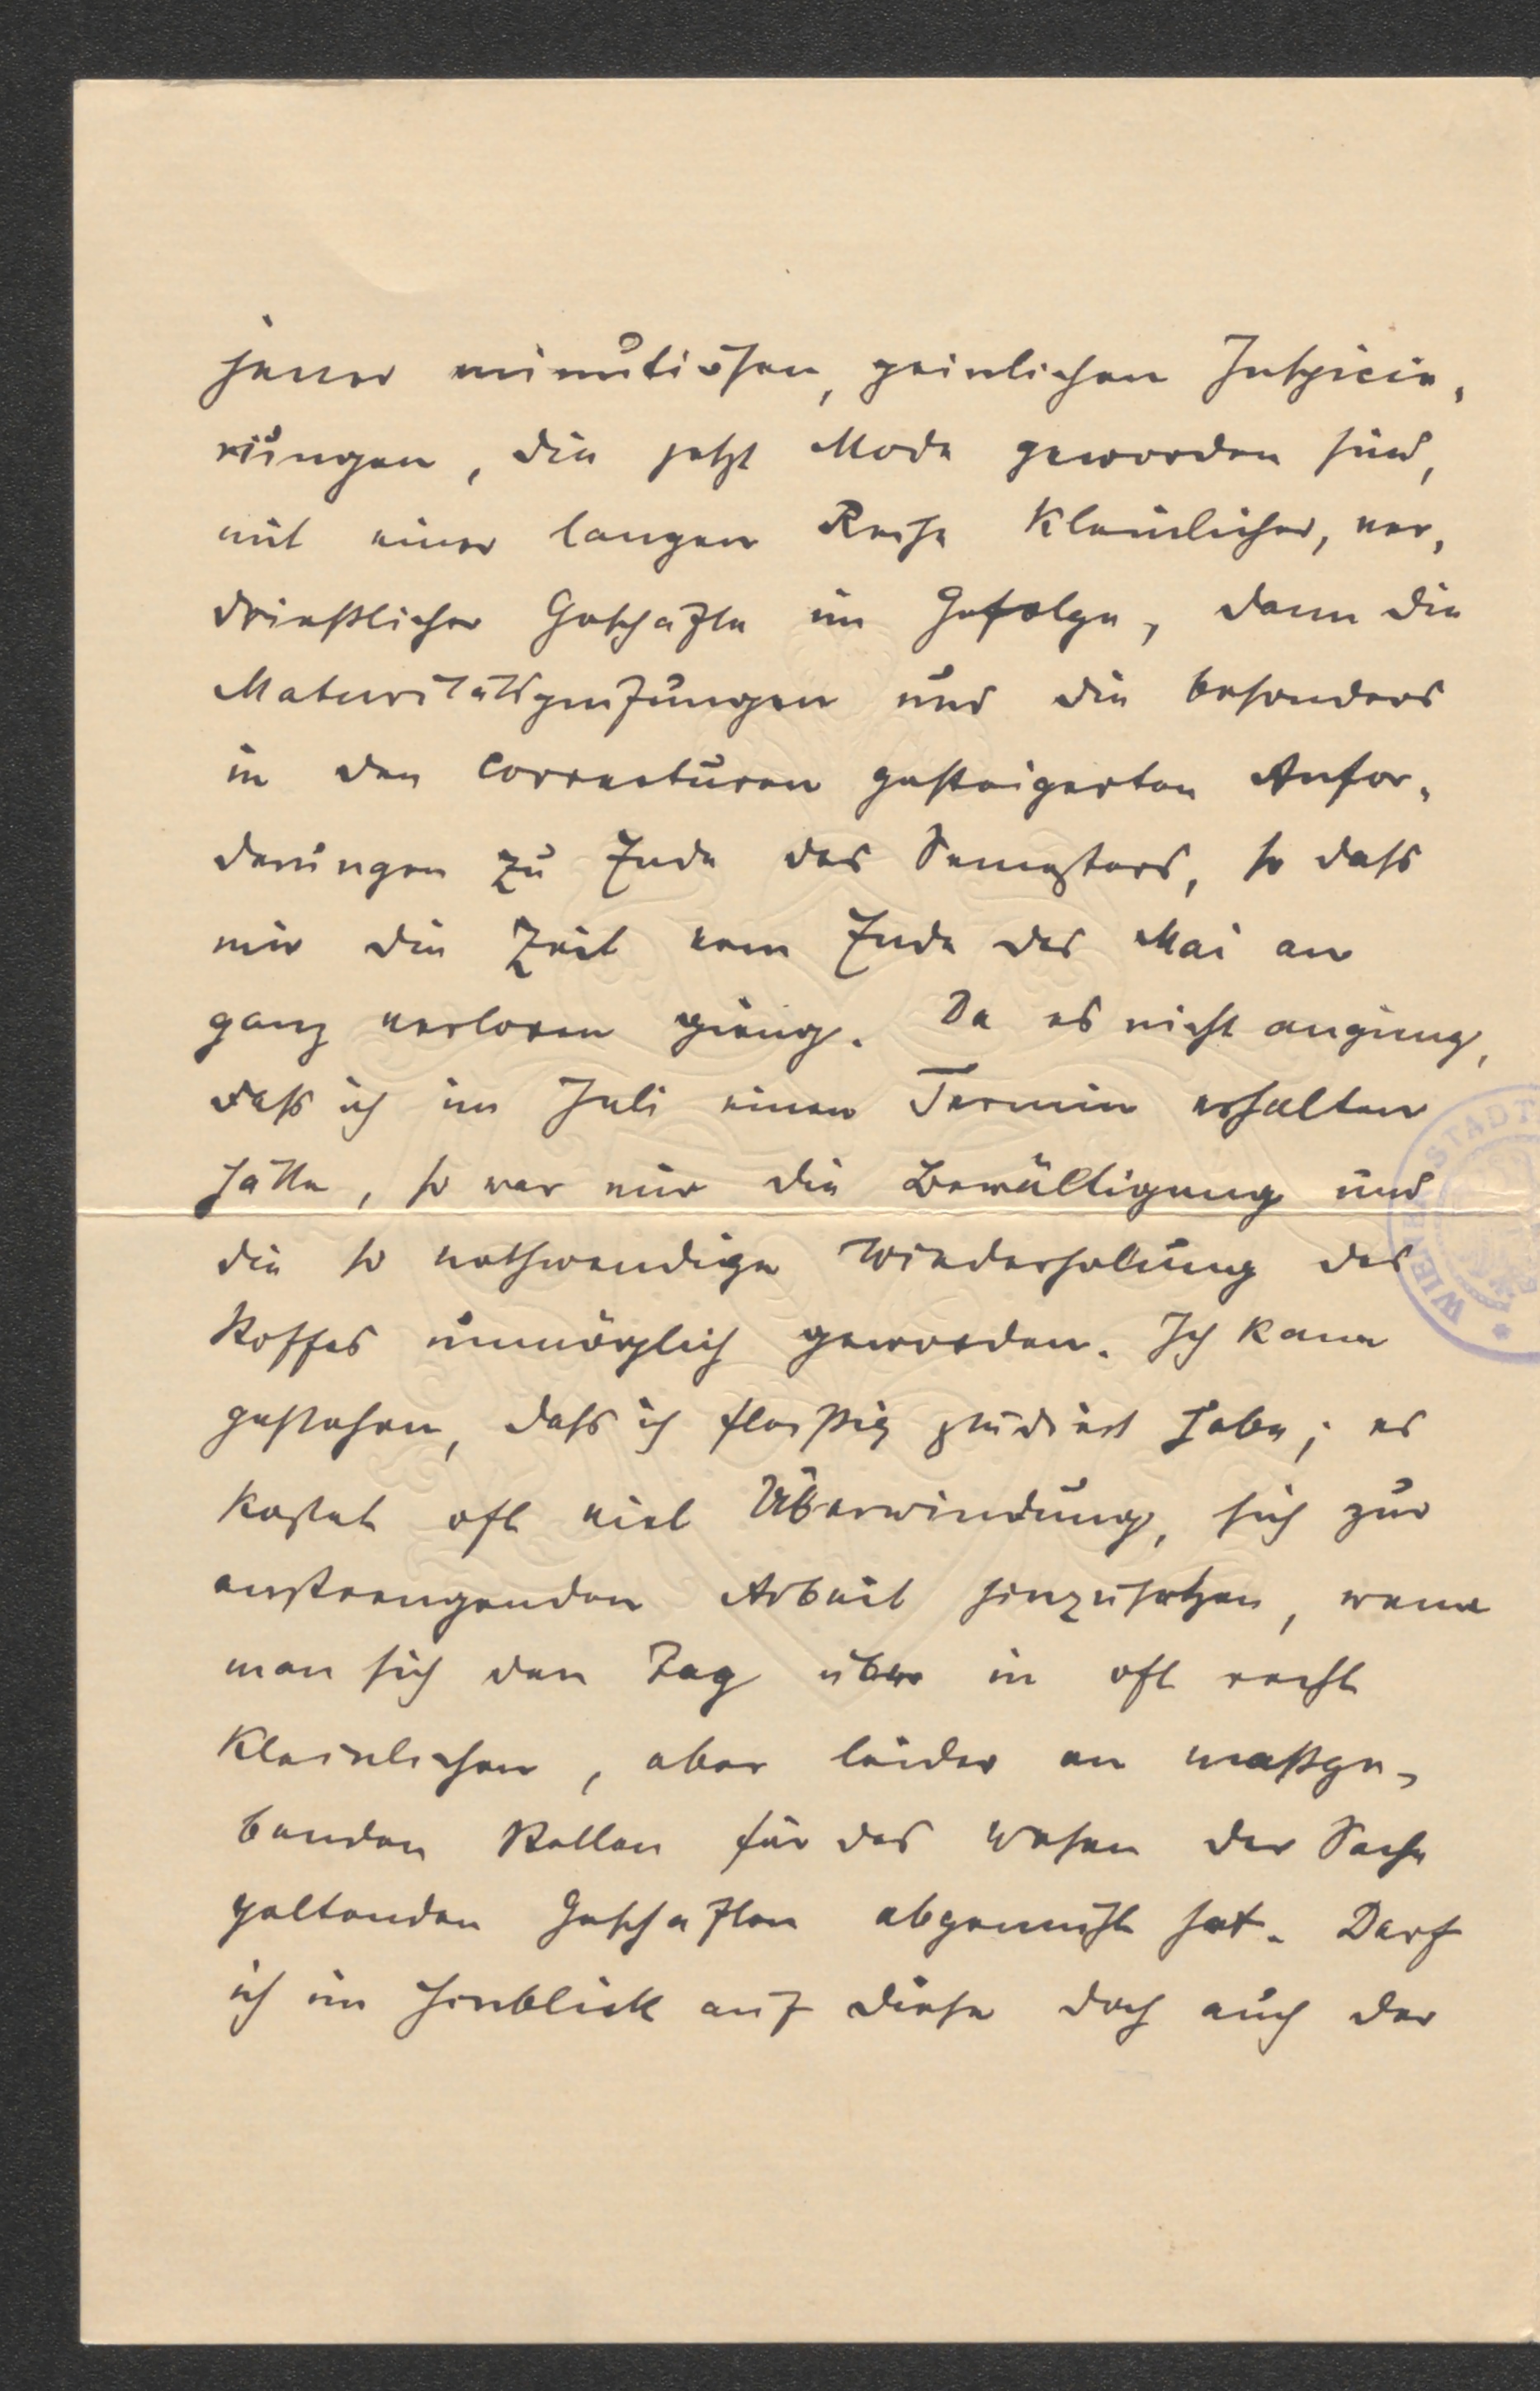 jener minutiösen, peinlichen Inspicie-
rungen, die jetzt Mode geworden sind,
mit einer langen Reihe kleinlicher, ver-
drießlicher Geschäfte im Gefolge, dann die
Maturitätsprüfungen und die besonders
in den Correcturen gesteigerten Anfor-
derungen zu Ende des Semesters, so dass
mir die Zeit vom Ende des Mai an
ganz verloren gieng. Da es nicht angieng,
dass ich im Juli einen Termin erhalten
hätte, so war mir die Bewältigung und
die so nothwendige Wiederholung des
Stoffes unmöglich geworden. Ich kann
gestehen, dass ich fleißig studiert habe; es
kostet oft viel Überwindung, sich zur
anstrengenden Arbeit hinzusetzen, wenn
man sich den Tag über in oft recht
kleinlichen, aber leider an maßge-
benden Stellen für das Wesen der Sache
geltenden Geschäften abgemüht hat. Darf
ich im Hinblick auf diese doch auch der
WIENER STADT